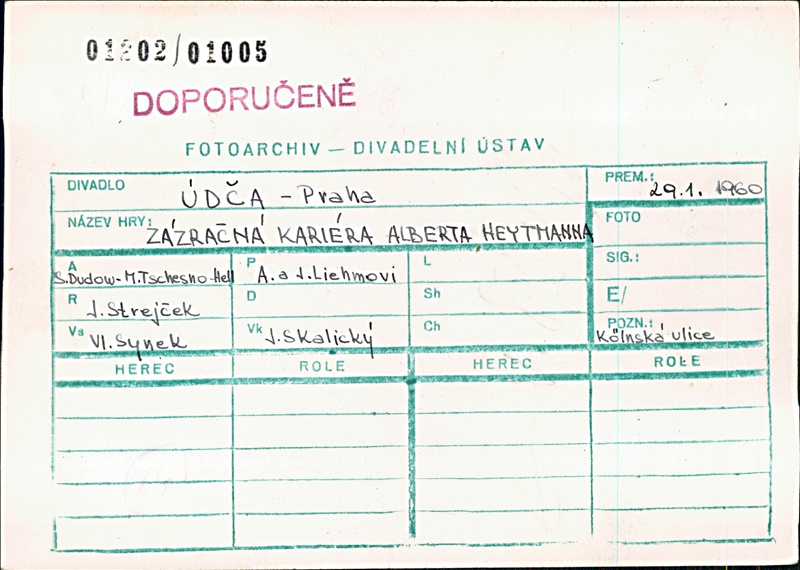 01202/01005
DOPORUČENĚ
FOTOARCHIV — DIVADELNÍ ÚSTAV
DIVADLO ÚDČA - Praha
PREM.: 29.1. 1960
NÁZEV HRY: ZÁZRAČNÁ KARIÉRA ALBERTA HEYTMANNA
FOTO
A S.Dudow-M.Tschesno-Hell
P A. a J. Liehmovi
L
SIG.:
R J. Strejček
D
Sh
E/
Vs Vl. Synek
Vk J. Skalický
Ch
POZN.: Kölnská ulice
HEREC ROLE HEREC ROLE